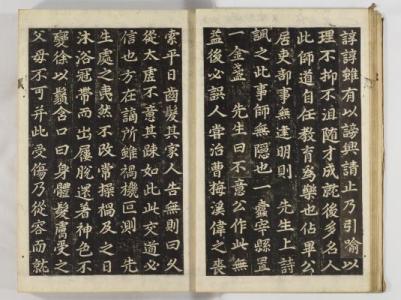 諄諄雖有以謗興請止乃引喻以
理不抑不沮隨才成就後多名人
此師道自任教育為樂也佔畢公
居吏部事無建明則 先生上詩
諷之此事師無隱也一蠹宰縣置
一金盞 先生曰不意公作此無
益後必誤人嘗治曹梅溪偉之喪
索平日齒髮其家人告無則曰父
從太虛不意其踈如此此交道必
信也方在謫所雖禍機叵測 先
生處之夷然不改常操禍及之日
沐浴冠帶而出屨脫還著神色不
變徐以鬚含口曰身體髮膚受之
父母不可并此受傷乃從容而就